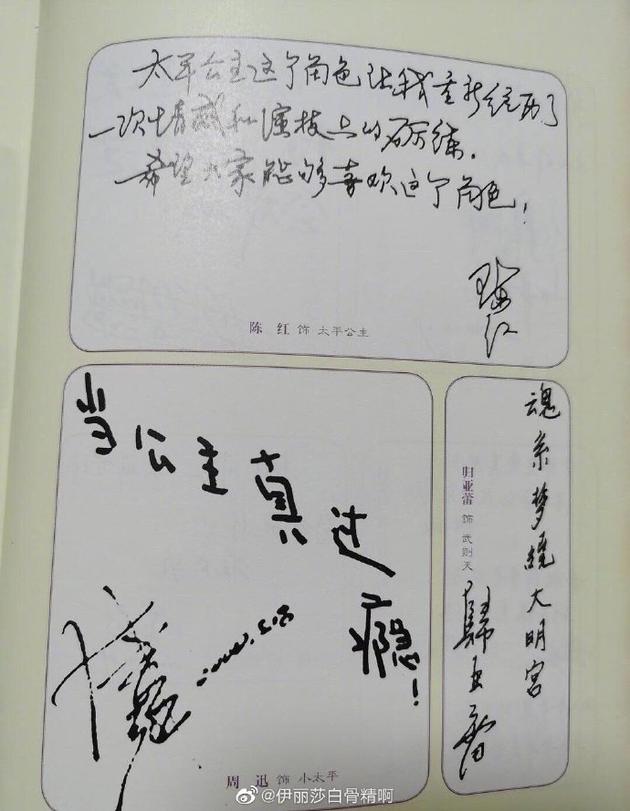 太平公主这个角色让我重新经历了
一次情感和演技上的砺练.
希望大家能够喜欢这个角色!
陈红
陈 红 饰 太平公主
当公主真过瘾!
周 迅 饰 小太平
魂系梦绕大明宫
归亚蕾 饰 武则天
歸亚蕾
@伊丽莎白骨精啊